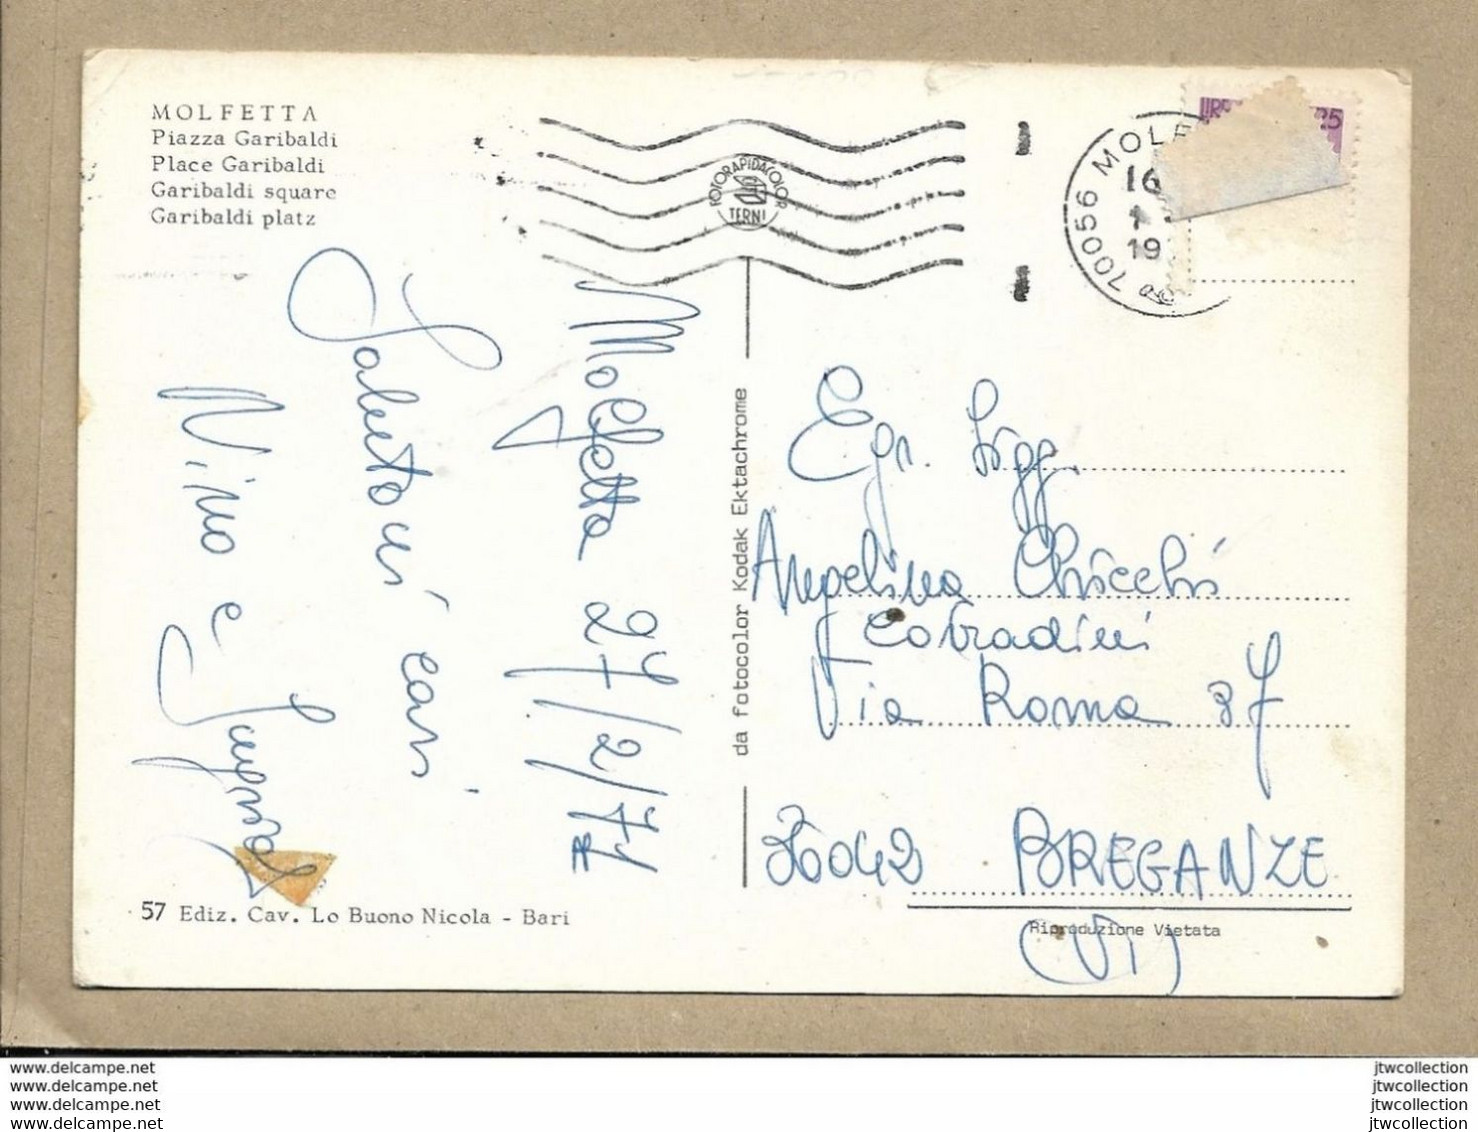 MOLFETTA
Piazza Garibaldi
Place Garibaldi
Garibaldi square
Garibaldi platz
FOTORAPIDACOLOR
TERNI
70056 MOLF
16
1
19
LIRE 25
Molfetta 27/2/71
Saluti cari
Nino e
57 Ediz. Cav. Lo Buono Nicola - Bari
da fotocolor Kodak Ektachrome
Egr. Sigg.
Angelina
Cobradini
Via Roma 37
36042 BREGANZE
(VI)
Riproduzione Vietata
www.delcampe.net
www.delcampe.net
www.delcampe.net
www.delcampe.net
jtwcollection
jtwcollection
jtwcollection
jtwcollection